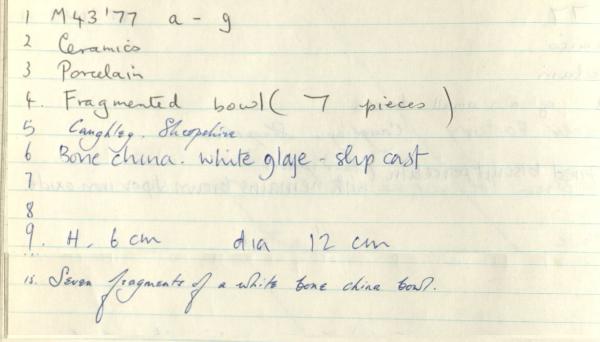 1 M43'77 a - g
2 Ceramics
3 Porcelain
4. Fragmented bowl ( 7 pieces )
5 Caughley. Shropshire
6 Bone china. white glaze - slip cast
7
8
9. H. 6 cm dia 12 cm
15. Seven fragments of a white bone china bowl.